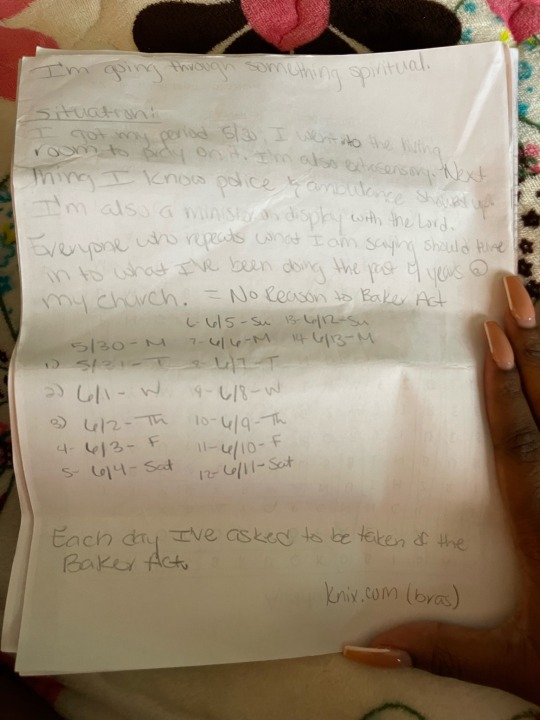 I'm going through something spiritual.
situation:
I got my period 5/30. I went into the living
room to pray on it. I'm also extrasensory. Next
Thing I know police & ambulance showed up
I'm also a minister on display with the Lord.
Everyone who repeats what I am saying should tune
in to what I've been doing the past years @
my church. = No Reason to Baker Act
6-6/5-Su 13-6/12-Su
5/30-M 7-6/6-M 14-6/13-M
1) 5/31-T 8-6/7-T
2) 6/1-W 9-6/8-W
3) 6/2-Th 10-6/9-Th
4-6/3-F 11-6/10-F
5-6/4-Sat 12-6/11-Sat
Each day I've asked to be taken of the
Baker Act.
Knix.com (bras)